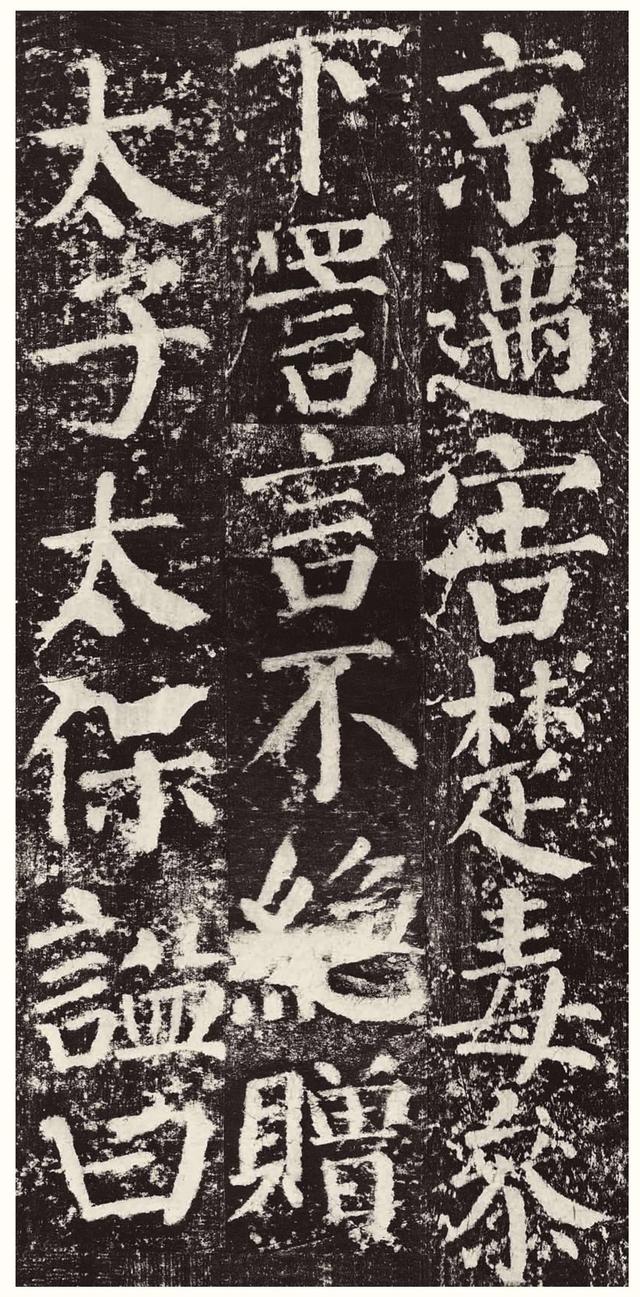 京遇害楚毒叅
下詈言不絕贈
太子太保謚曰